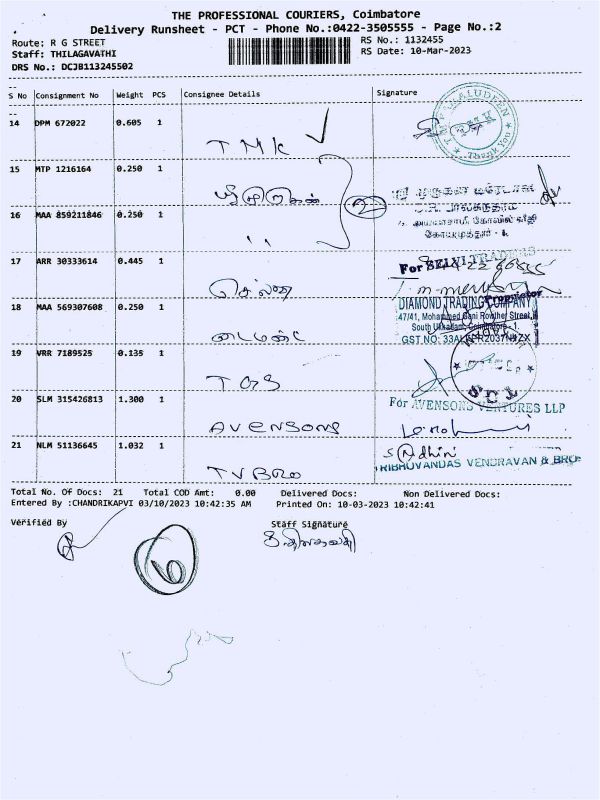 THE PROFESSIONAL COURIERS, Coimbatore
Delivery Runsheet - PCT - Phone No.:0422-3505555 - Page No.:2
Route: R G STREET
RS No.: 1132455
Staff: THILAGAVATHI
RS Date: 10-Mar-2023
DRS No.: DCJB113245502
S No Consignment No Weight PCS Consignee Details Signature
14 DPM 672022 0.605 1
TMK
Thank You
15 MTP 1216164 0.250 1
முருகன்
16 MAA 859211846 0.250 1
"
2
17 ARR 30333614 0.445 1
For SELVI TRADERS
Proprietor
செல்வி
18 MAA 569307608 0.250 1
DIAMOND TRADING COMPANY
47/41, Mohammed Gani Rowther Street,
South Ukkadam, Coimbatore - 1.
GST NO: 33A
டைமண்ட்
19 VRR 7189525 0.135 1
TOS
20 SLM 315426813 1.300 1
For AVENSONS VENTURES LLP
AVENSONS
21 NLM 51136645 1.032 1
TRIBHUVANDAS VENDRAVAN & BRO
TVBRO
Total No. Of Docs: 21 Total COD Amt: 0.00 Delivered Docs: Non Delivered Docs:
Entered By :CHANDRIKAPVI 03/10/2023 10:42:35 AM Printed On: 10-03-2023 10:42:41
Verified By
Staff Signature